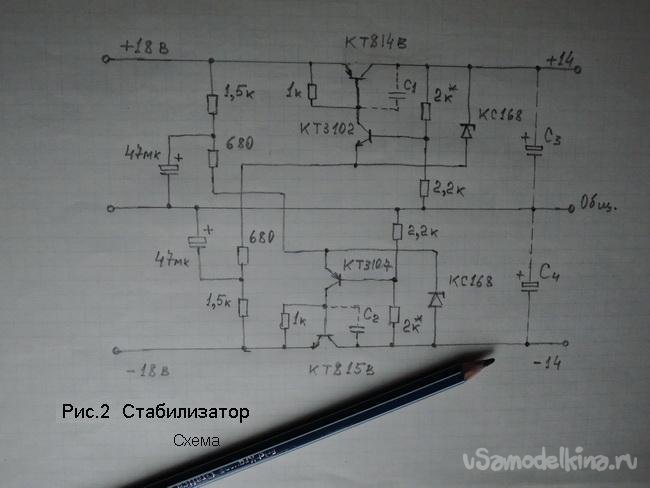 КТ814В
+18В
+14
1,5к
1к
C1
2к*
КС168
КТ3102
680
C3
47мк
+
+
2,2к
Общ.
+
47мк
680
2,2к
КТ3107
КС168
+
C4
1,5к
1к
C2
2к*
-18В
КТ815В
-14
Рис.2 Стабилизатор
Схема
vSamodelkina.ru